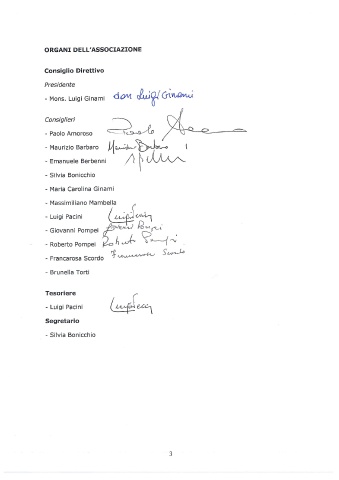 ORGANI DELL'ASSOCIAZIONE
Consiglio Direttivo
Presidente
- Mons. Luigi Ginami don Luigi Ginami
Consiglieri
- Paolo Amoroso Paolo
- Maurizio Barbaro Maurizio Barbaro
- Emanuele Berbenni
- Silvia Bonicchio
- Maria Carolina Ginami
- Massimiliano Mambella
- Luigi Pacini
- Giovanni Pompei
- Roberto Pompei Roberto Pompei
- Francarosa Scordo Francarosa Scordo
- Brunella Torti
Tesoriere
- Luigi Pacini
Segretario
- Silvia Bonicchio
3